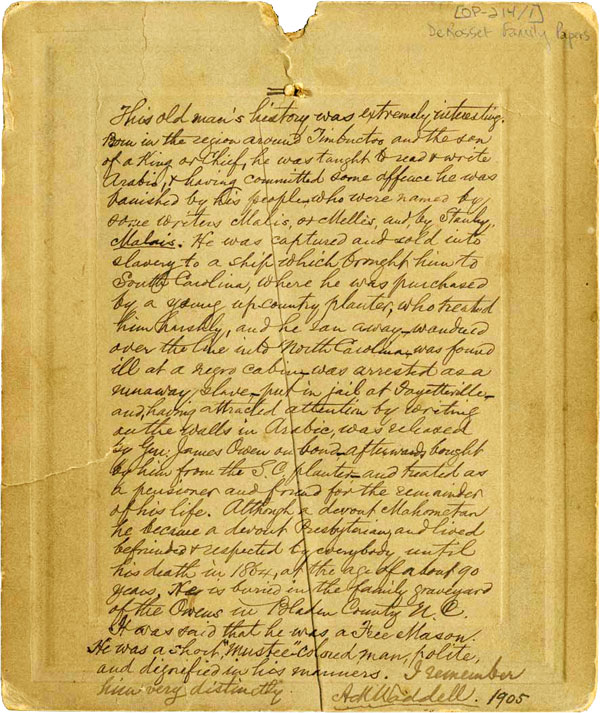 [OP-214/1]
DeRosset Family Papers
This old man's history was extremely interesting.
Born in the region around Timbuctoo and the son
of a King or Chief, he was taught to read & write
Arabic, & having committed some offence he was
banished by his people who were named by
some writers Malis, or Mellis, and, by Stanley,
Malais. He was captured and sold into
slavery to a ship which brought him to
South Carolina, where he was purchased
by a young up country planter, who treated
him harshly, and he ran away—wandered
over the line into North Carolina—was found
ill at a negro cabin—was arrested as a
runaway slave—put in jail at Fayetteville—
and, having attracted attention by writing
on the walls in Arabic, was released
by Gen. James Owen on bond—afterwards bought
by him from the S.C. planter—and treated as
a pensioner and friend for the remainder
of his life. Although a devout Mahometan
he became a devout Presbyterian, and lived
befriended & respected by everybody until
his death in 1864, at the age of about 90
years. He is buried in the family graveyard
of the Owens in Bladen County N. C.
It was said that he was a Free Mason.
He was a short "Mustee" colored man, polite,
and dignified in his manners. I remember
him very distinctly.
A. M. Waddell. 1905